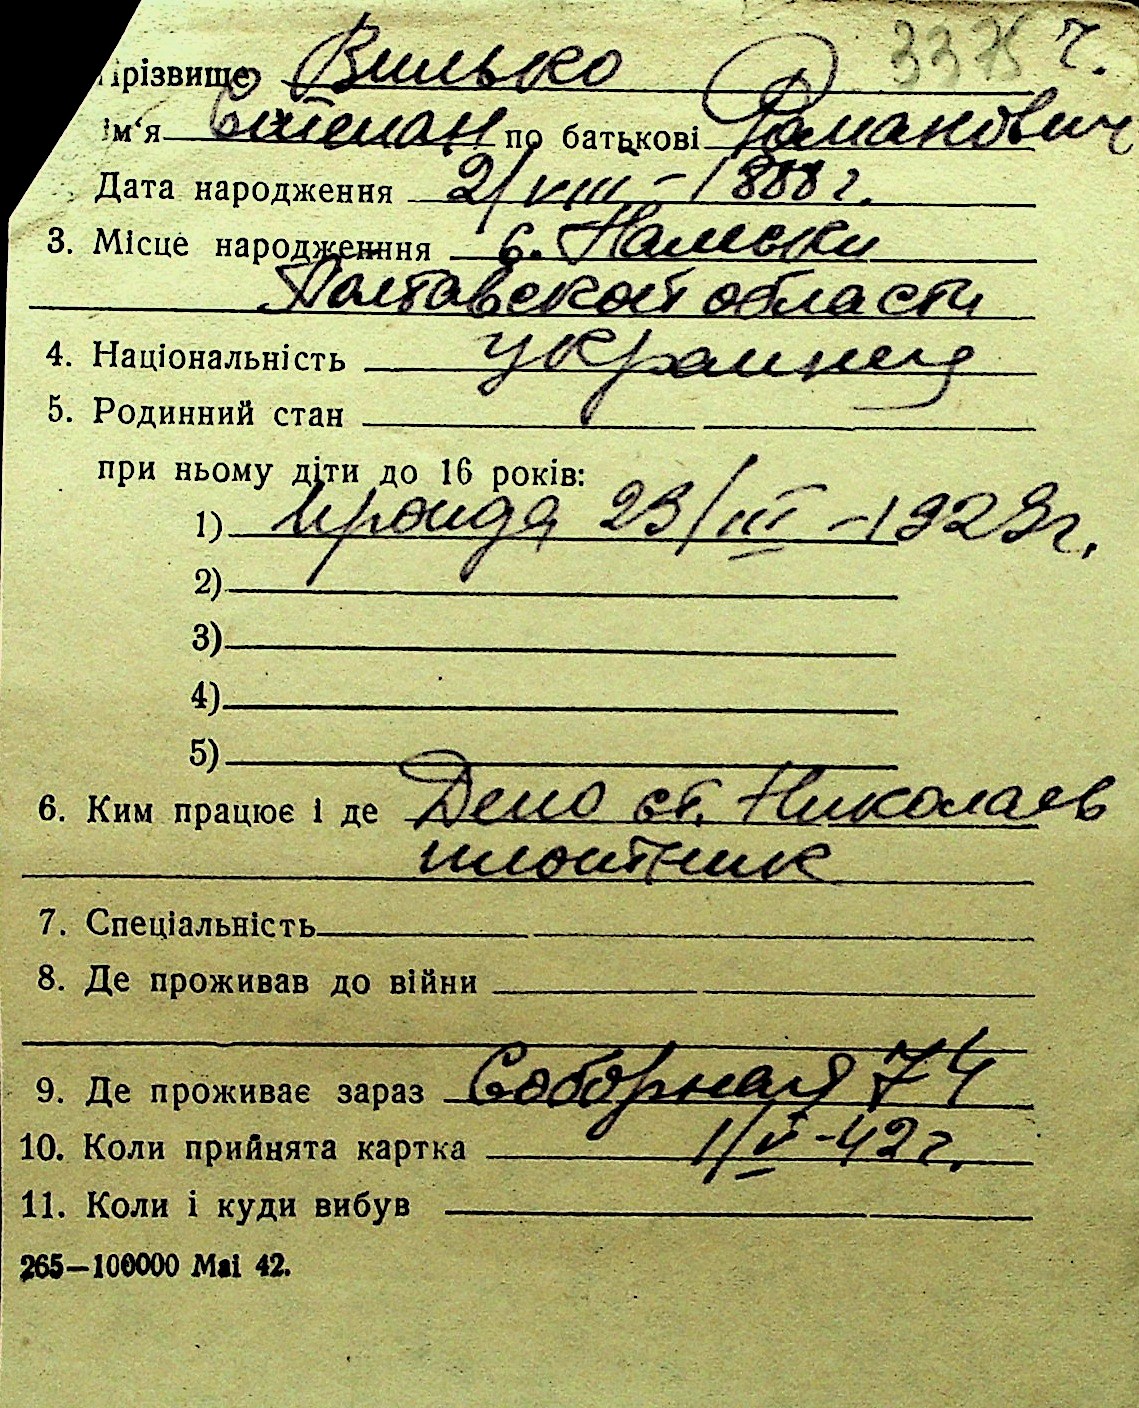 Прізвище Вилько 3375 г.
Ім'я Степан по батькові Раманович
Дата народження 2/VIII-1888 г.
3. Місце народженння с.
Полтавской области
4. Національність украинец
5. Родинний стан
при ньому діти до 16 років:
1) Ираида 23/III-1929 г.
2)
3)
4)
5)
6. Ким працює і де Депо ст. Николаев
плотник
7. Спеціальність
8. Де проживав до війни
9. Де проживає зараз Соборная 74
10. Коли прийнята картка 1/V-42 г.
11. Коли і куди вибув
265—100000 Mai 42.